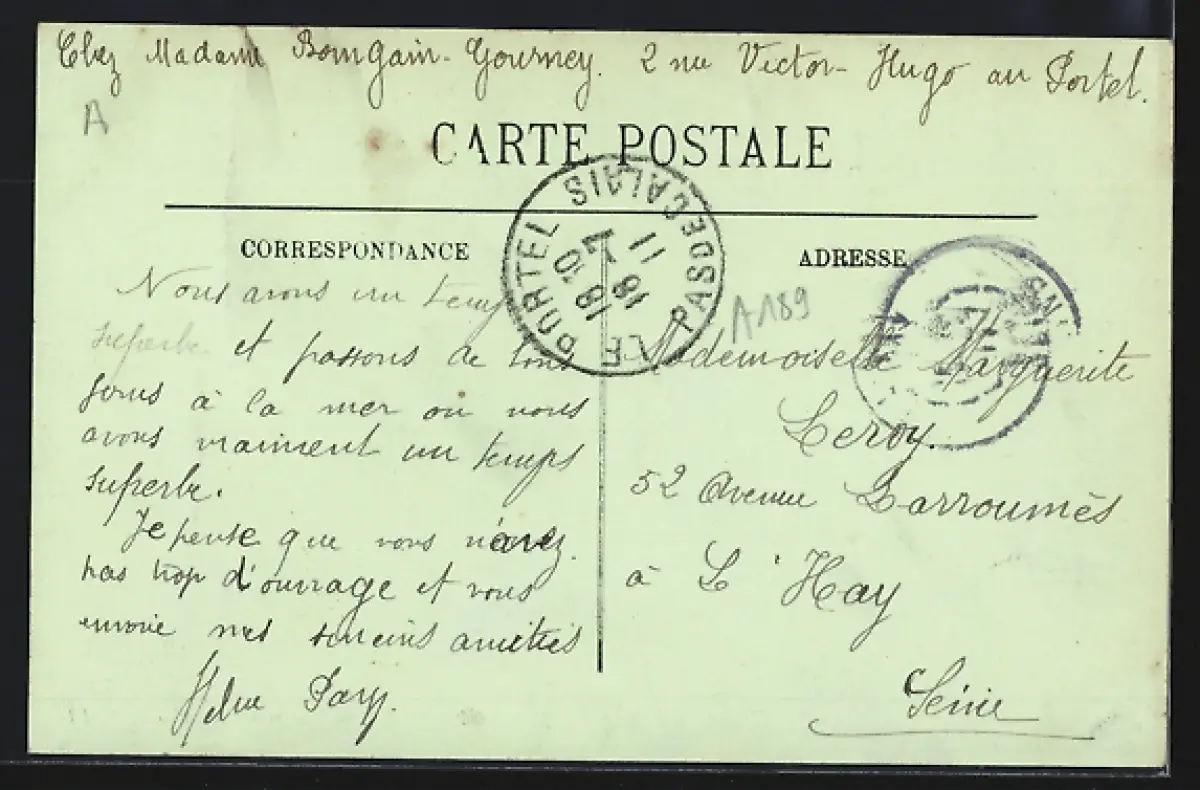 Chez Madame Bourgain-Gournay. 2 rue Victor-Hugo au Portel.
A
CARTE POSTALE
CORRESPONDANCE
ADRESSE
LE PORTEL PAS DE CALAIS
18 10
18
7
11
A189
Nous avons un temps
superbe et passons de bons
jours à la mer où nous
avons vraiment un temps
superbe.
Je pense que vous n'avez
pas trop d'ouvrage et vous
envoie mes sincères amitiés
Pary.
Mademoiselle Marguerite
Leroy.
52 Avenue Larroumès
à L'Hay
Seine